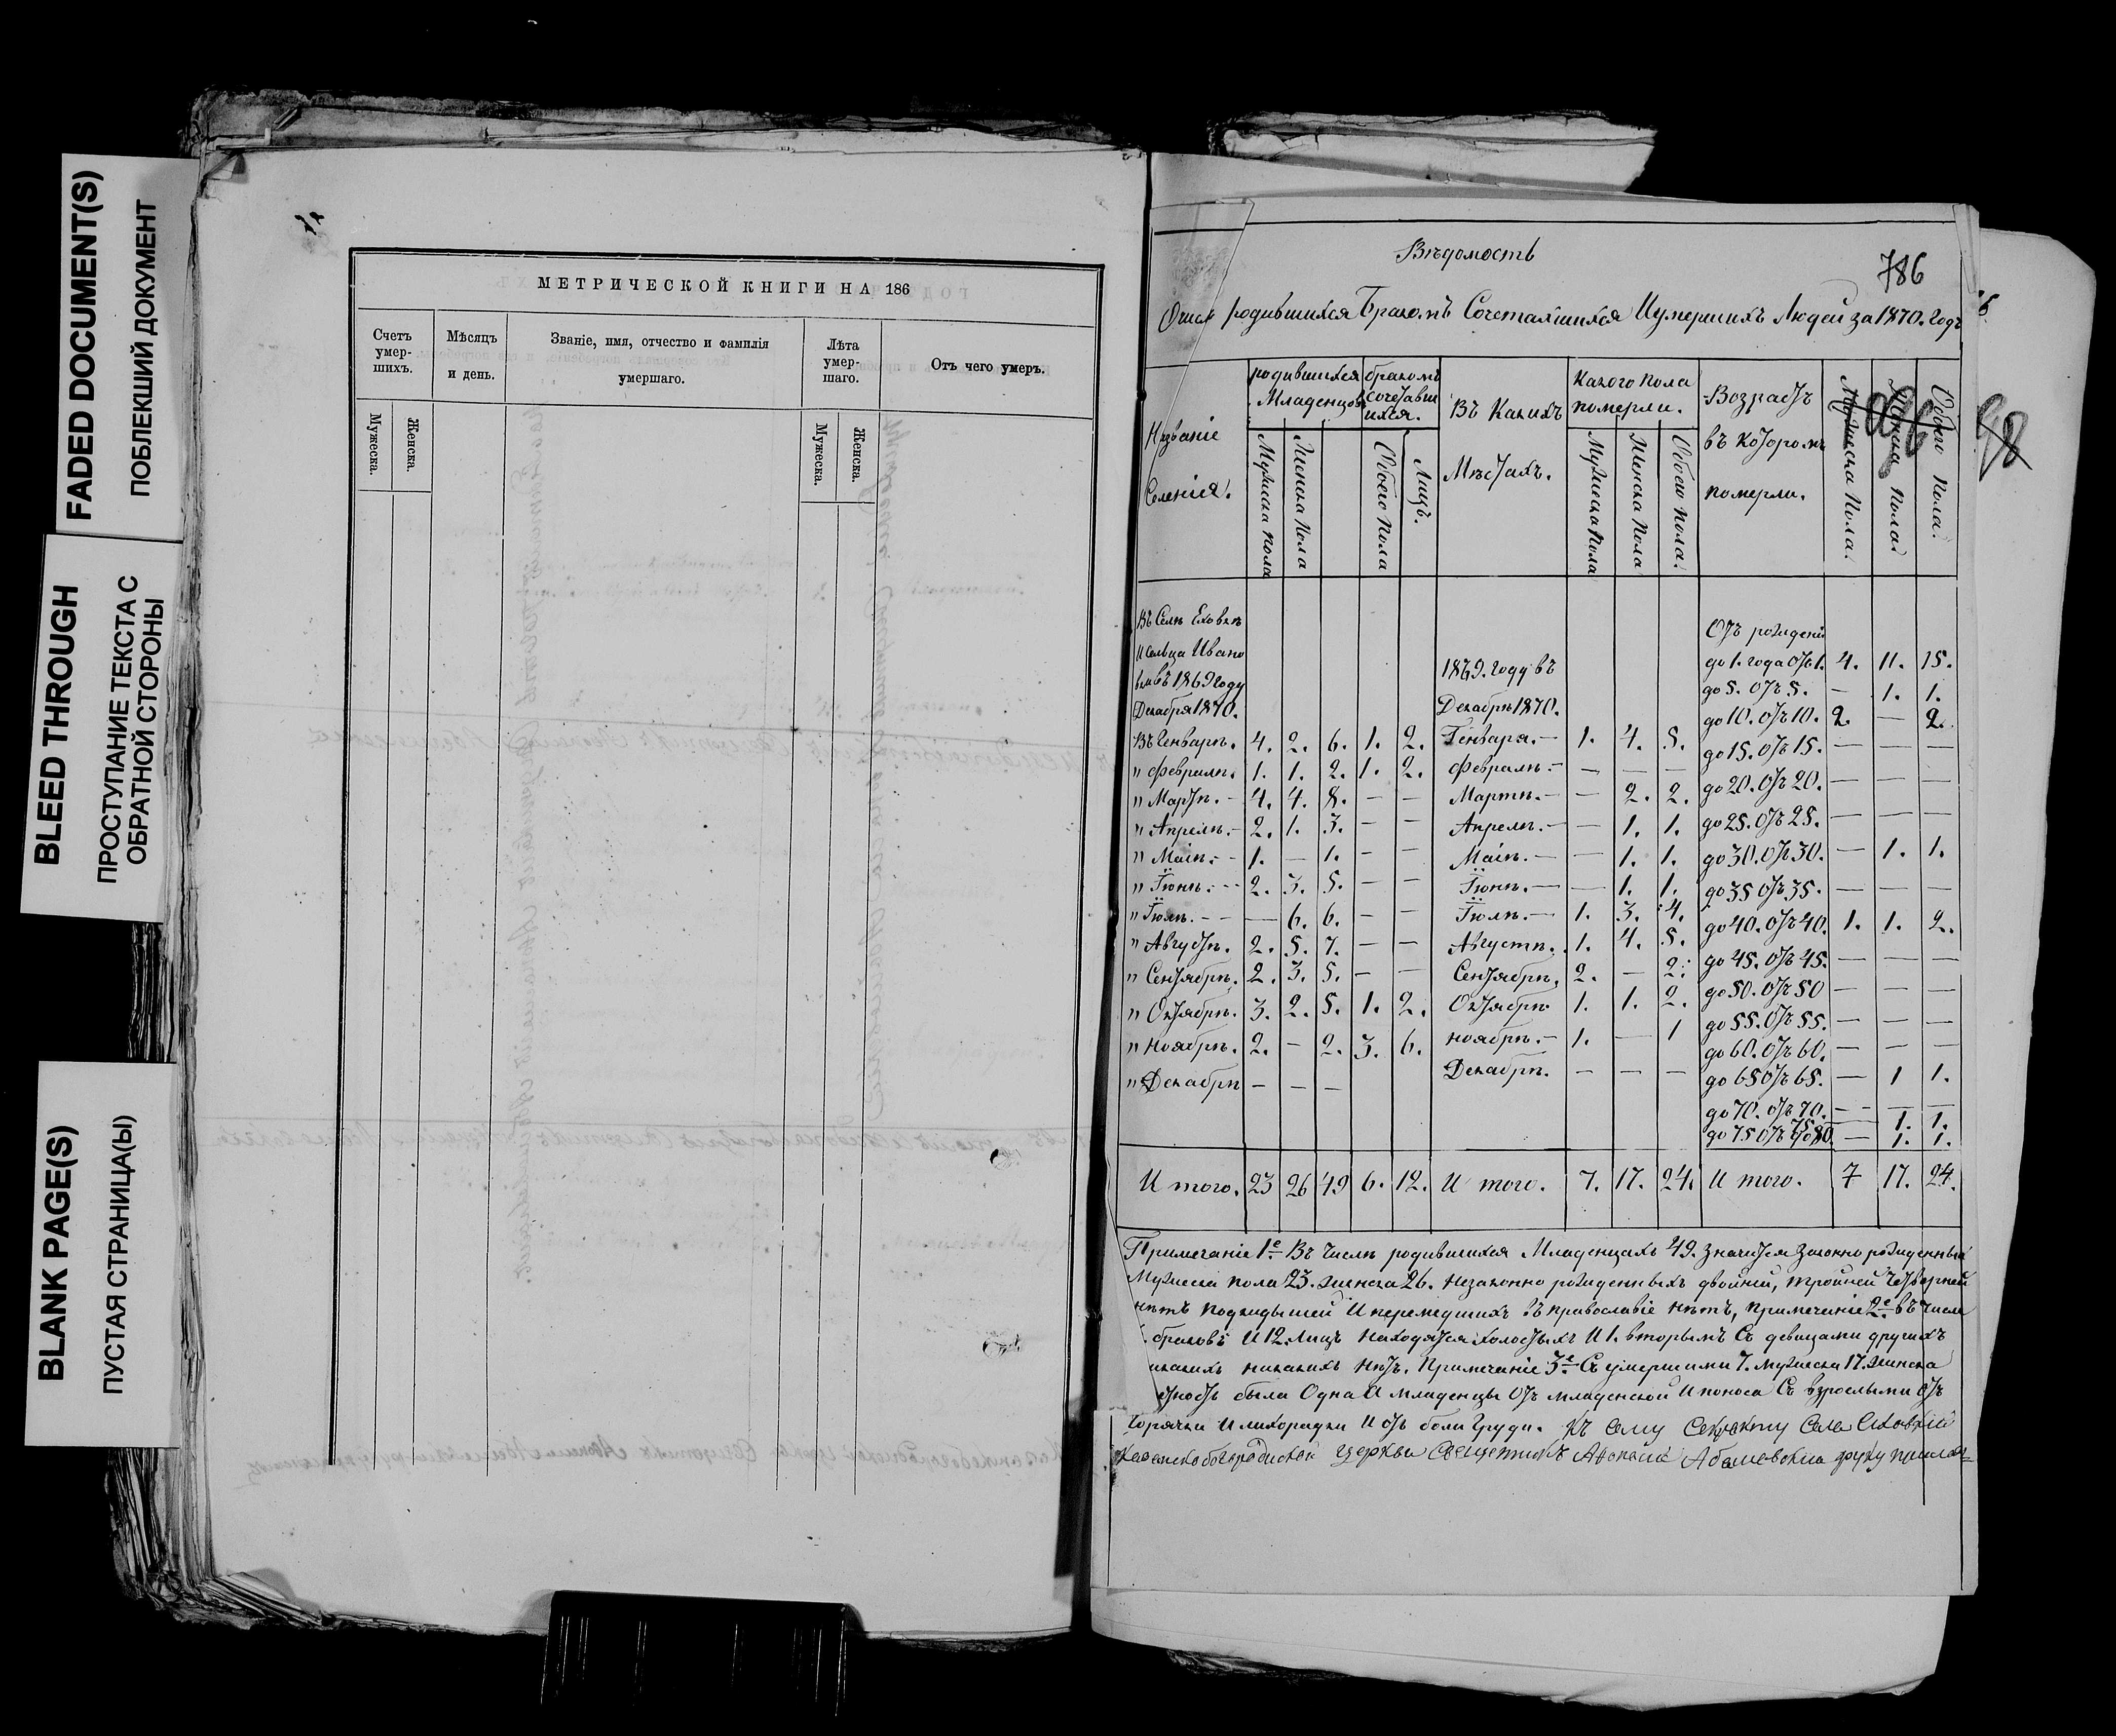 FADED DOCUMENT(S)
ПОБЛЕКШИЙ ДОКУМЕНТ
BLEED THROUGH
ПРОСТУПАНИЕ ТЕКСТА С
ОБРАТНОЙ СТОРОНЫ
BLANK PAGE(S)
ПУСТАЯ СТРАНИЦА(Ы)
МЕТРИЧЕСКОЙ КНИГИ НА 186
Счетъ умер- шихъ.
Мѣсяцъ и день.
Званіе, имя, отчество и фамилія умершаго.
Лѣта умер- шаго.
Отъ чего умеръ.
Мужеска. Женска. Мужеска. Женска.
Вѣдомость
786
родившихся Бракомъ Сочетавшихся Иумершихъ Людей за 1870. годъ
96
98
Названіе Селенія.
родившихся Младенцовъ
бракомъ сочетавшихся.
Въ Какихъ Мѣстахъ.
Какого пола померли.
Возрастъ въ которомъ померли.
Мужеска Пола.
Женска пола.
Обоего Пола.
Мужеска пола
Женска пола
Обоего пола
Лицъ.
Мужеска пола
Женска пола
Обоего пола.
Въ Селѣ Еховкѣ Отъ рожденія
Исельца Ивано
1869. году въ до 1. года отъ 1. 4. 11. 15.
въ 1869 году до 5. отъ 5. — 1. 1.
Декабря 1870. Декабрѣ 1870. до 10. отъ 10. 2. — 2.
Въ Генварѣ. 4. 2. 6. 1. 2. Генваря. — 1. 4. 5. до 15. отъ 15. — — —
" Февралѣ. 1. 1. 2. 1. 2. Февралѣ. — — — — до 20. отъ 20. — — —
" Мартѣ. — 4. 4. 8. — — Мартѣ. — — 2. 2. до 25. отъ 25. — — —
" Апрелѣ. — 2. 1. 3. — — Апрелѣ. — — 1. 1. до 30. отъ 30. — 1. 1.
" Маіѣ. — 1. — 1. — — Маіѣ. — — 1. 1. до 35 отъ 35. — — —
" Іюнѣ. — 2. 3. 5. — — Іюнѣ. — — 1. 1. до 40. отъ 40. 1. 1. 2.
" Іюлѣ. — — 6. 6. — — Іюлѣ. — 1. 3. 4. до 45. отъ 45. — — —
" Августѣ. 2. 5. 7. — — Августѣ. 1. 4. 5. до 50. отъ 50 — — —
" Сентябрѣ. 2. 3. 5. — — Сентябрѣ. 2. — 2. до 55. отъ 55. — — —
" Октябрѣ. 3. 2. 5. 1. 2. Октябрѣ 1. 1. 2. до 60. отъ 60. — — —
" Ноябрѣ. 2. — 2. 3. 6. ноябрѣ. — 1. — 1 до 65 отъ 65. — 1 1.
" Декабрѣ — — — Декабрѣ. — — — до 70. отъ 70. — — —
75. — 1. 1.
до 75 отъ 80. — 1. 1.
И того. 23 26 49 6. 12. И того. 7. 17. 24. И того. 7 17. 24.
Примечаніе 1е Въ числѣ родившихся Младенцахъ 49. значится законно рожденныхъ
Мужеска пола 23. женска 26. незаконно рожденныхъ двойней, тройней четверней
нѣтъ подкидышей И перешедшихъ въ православіе нѣтъ, примечаніе 2е въ числѣ
браковъ И 12. Лицъ находятся холостыхъ И 1. вторымъ Съ девицами другихъ
никакихъ нѣтъ. Примечаніе 3е Съ умершими 7. мужеска 17. женска
была Одна А младенцы Отъ младенской И поноса Съ взрослыми отъ
горячки И лихорадки И отъ боли груди. Къ сему Села Еховки
Казанскобогородиской церкви Священникъ Абамовский руку